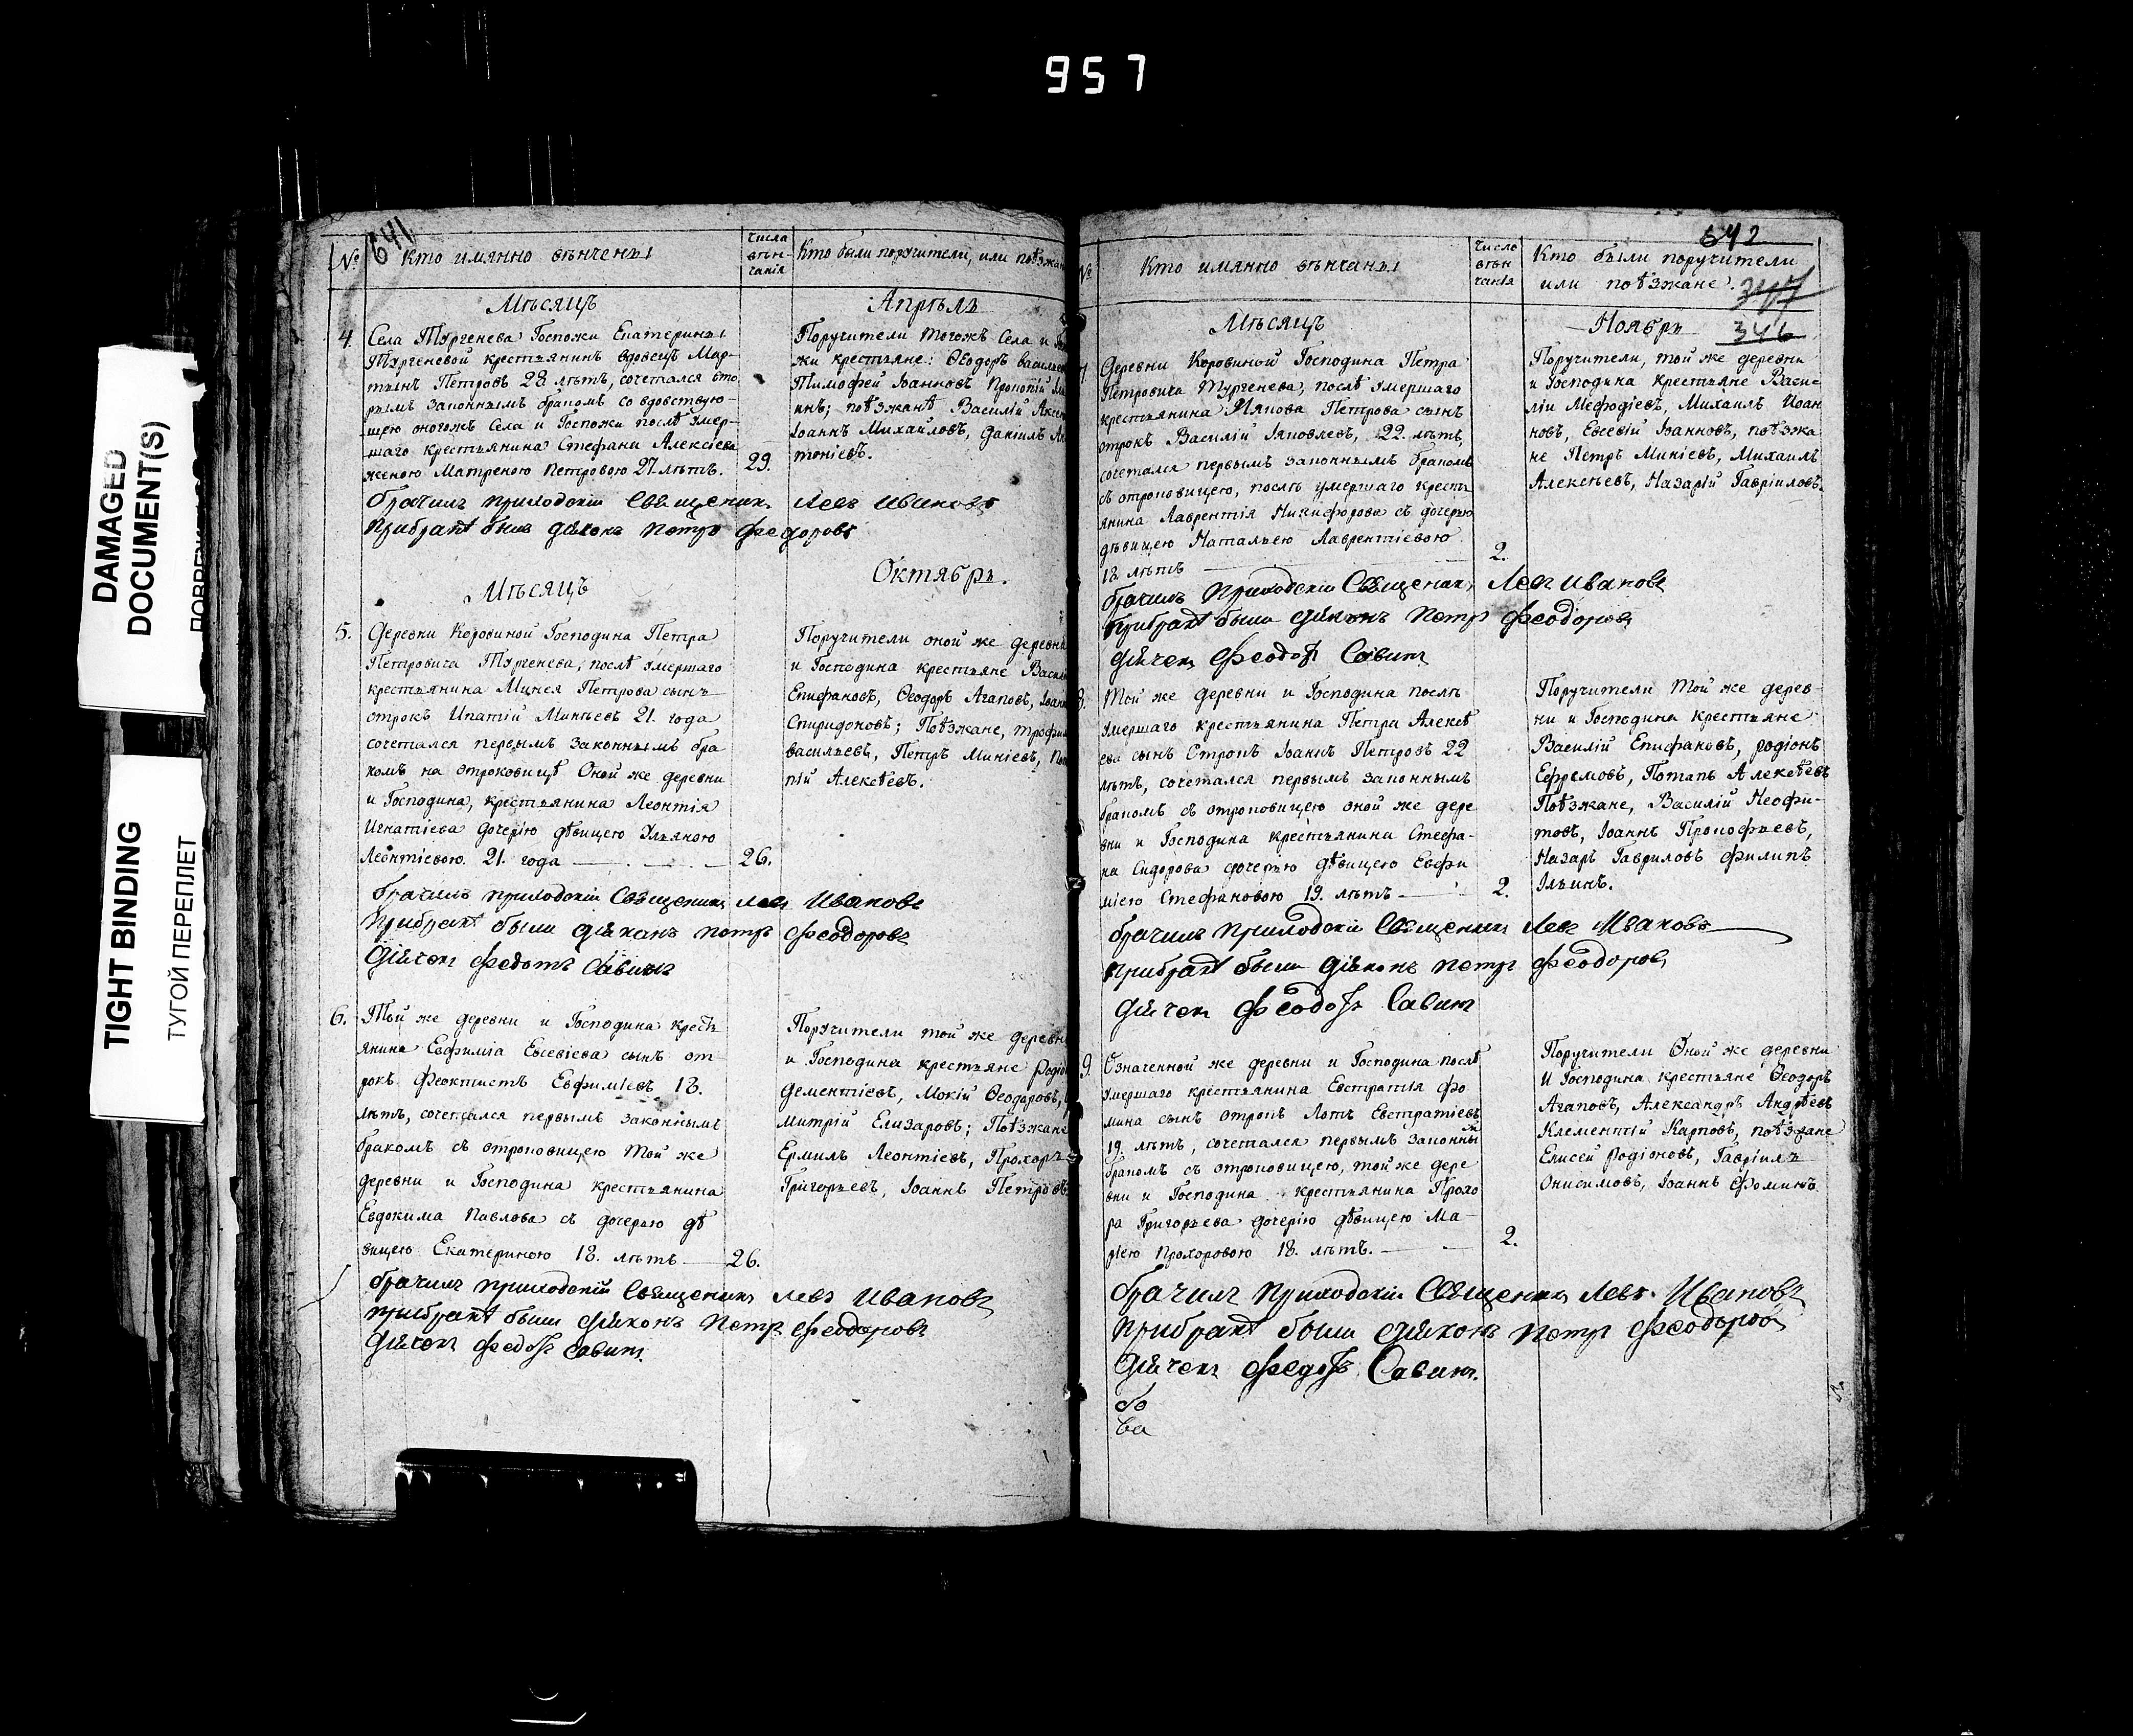 957
DAMAGED
DOCUMENT(S)
TIGHT BINDING
ТУГОЙ ПЕРЕПЛЕТ
641
№
Кто имянно вѣнчены
числа
вѣн-
чанія
Кто были поручители, или
Мѣсяцъ
Апрѣль
4
Села Тургенева Госпожи Екатерины
Тургеневой крестьянинъ вдовецъ Мар-
тынъ Петровъ 28 лѣтъ, сочетался вто
рымъ законнымъ бракомъ со вдовствую-
щею оногожъ Села и Госпожи послѣ умер-
шаго крестьянина Стефана Алексіева
женою Матреною Петровою 27 лѣтъ.
29.
Поручители тогожъ Села и
жи крестьяне: Ѳеодоръ
Тимофей Іоанновъ Прокопій
инъ; поѣзжанѣ Василій
Іоаннъ Михайловъ, Даніилъ
тоніевъ.
брачилъ приходскій Священикъ Левъ Ивановъ
прибракѣ былъ діяконъ Петръ Федоровъ
Мѣсяцъ
Октябрь.
5.
Деревни Коровиной Господина Петра
Петровича Тургенева, послѣ умершаго
крестьянина Минея Петрова сынъ
отрокъ Ипатій Минѣевъ 21. года
сочетался первымъ законнымъ бра
комъ на отроковицѣ Оной же деревни
и Господина, крестьянина Леонтія
Игнатіева дочерію дѣвицею Ульяною
Леонтіевою. 21. года
26.
Поручители оной же деревни
и Господина крестьяне
Епифановъ, Ѳеодоръ Агаповъ,
Спиридоновъ; Поѣзжане,
васильевъ, Петръ Миніевъ,
пій Алексѣевъ.
брачилъ приходскій Священикъ Левъ Ивановъ
Прибракѣ были діяканъ Петръ Феодоровъ
Діячекъ Федотъ Савинъ
6.
Той же деревни и Господина кресть
янина Евфиміа Евсевіева сынъ от-
рокъ Феоктистъ Евфиміевъ 18.
лѣтъ, сочетался первымъ законнымъ
бракомъ съ отроковицею той же
деревни и Господина крестьянина
Евдокима Павлова съ дочерью дѣ
вицею Екатериною 18. лѣтъ
26.
Поручители той же деревни
и Господина крестьяне
Дементіевъ, Мокій Ѳеодоровъ,
митрій Елизаровъ; Поѣзжане
Ермилъ Леонтіевъ, Прохоръ
Григорьевъ, Іоаннъ Петровъ
брачилъ приходскій Священикъ Левъ Ивановъ
прибракѣ были діяконъ Петръ Феодоровъ
Діячекъ Федотъ Савинъ.
642
№
Кто имянно вѣнчаны
Число
вѣн
чанія
Кто были поручители
или поѣзжане.
347
346
Мѣсяцъ
Ноябрь
7.
Деревни Коровиной Господина Петра
Петровича Тургенева, послѣ умершаго
крестьянина Иякова Петрова сынъ
отрокъ Василій Іяковлевъ, 22. лѣтъ,
сочетался первымъ законнымъ бракомъ
съ отроковицею, послѣ умершаго кресть
янина Лаврентія Никифорова съ дочерью
дѣвицею Натальею Лаврентіевою
18 лѣтъ
2.
Поручители, той же деревни
и Господина крестьяне Васи-
лій Мефодіевъ, Михаилъ Иоан
новъ, Евсевій Іоанновъ, поѣзжа
не Петръ Миніевъ, Михаилъ
Алексѣевъ, Назарій Гавріиловъ.
брачилъ Приходскій Священикъ Левъ Ивановъ
прибракѣ были діяконъ Петръ Феодоровъ
діячекъ Феодотъ Савинъ
8.
Той же деревни и Господина послѣ
умершаго крестьянина Петра Алексѣ
ева сынъ Отрокъ Іоаннъ Петровъ 22
лѣтъ, сочетался первымъ законнымъ
бракомъ съ отроковицею оной же дере
вни и Господина крестьянина Стефа-
на Сидорова дочерью дѣвицею Евфи
міею Стефановою 19. лѣтъ
2.
Поручители Той же дерев-
ни и Господина крестьяне
Василій Епифановъ, родіонъ
Ефремовъ, Потапъ Алексѣевъ
Поѣзжане, Василій Неофи-
товъ, Іоаннъ Прокофьевъ,
Назаръ Гавриловъ Филипъ
Ильинъ.
брачилъ приходскій Священикъ Левъ Ивановъ
прибракѣ были Діяконъ Петръ Феодоровъ
Діячекъ Феодотъ Савинъ
9.
Означенной же деревни и Господина послѣ
умершаго крестьянина Евстратія Фо
мина сынъ отрокъ Лотъ Евстратіевъ
19 лѣтъ, сочетался первымъ законны
бракомъ съ отроковицею, той же дере
вни и Господина крестьянина Прохо
ра Григорьева дочерію дѣвицею Ма-
ріею Прохоровою 18. лѣтъ.
2.
Поручители Оной же деревни
И Господина крестьяне Ѳеодоръ
Агаповъ, Александръ Андрѣевъ
Клементій Карповъ, поѣзжане
Елисей Родіоновъ, Гавріилъ
Онисимовъ, Іоаннъ Фоминъ
брачилъ приходскій Священикъ Левъ Ивановъ
прибракѣ были Діяконъ Петръ Феодоровъ
Діячекъ Федотъ Савинъ.